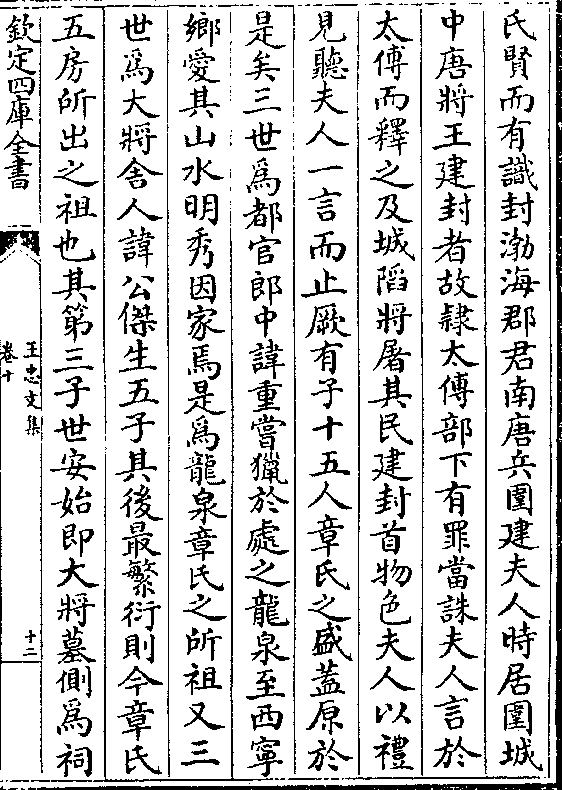 氏賢而有識封渤海郡君南唐兵圍建夫人時居圍城
中唐將王建封者故隸太傅部下有罪當誅夫人言於
太傅而釋之及城䧟將屠其民建封首物色夫人以禮
見聽夫人一言而止厥有子十五人章氏之盛蓋原於
是矣三世為都官郎中諱重嘗獵於處之龍泉至西寧
鄉愛其山水明秀因家焉是為龍泉章氏之所祖又三
世為大將舍人諱公傑生五子其後最繁衍則今章氏
五房所出之祖也其第三子世安始即大將墓側為祠
欽定四庫全書
王忠文集
卷十
十二